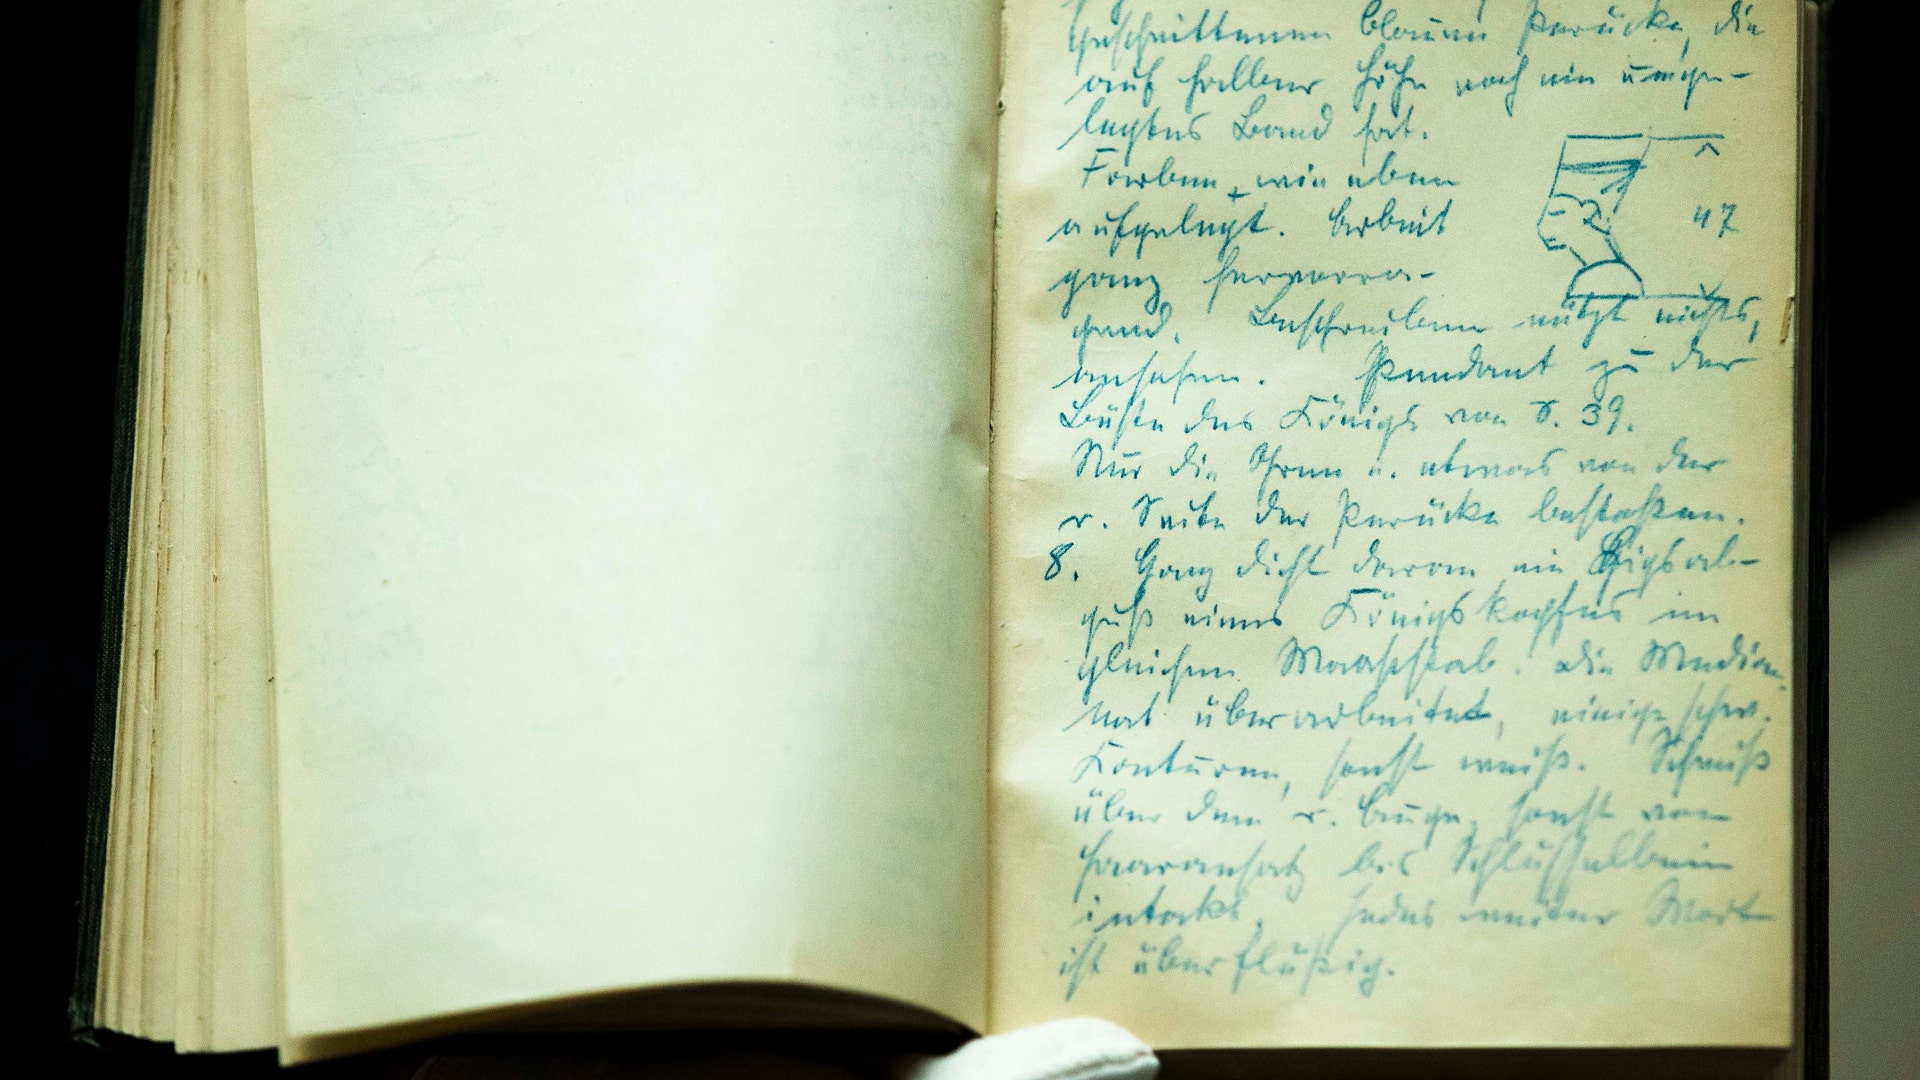 geschnittenen blauen Perücke, die
auf halber Höhe noch ein umge-
legtes Band hat.
Farben wie eben
aufgelegt. Arbeit
ganz hervorra-
47
gend. Beschreiben nützt nichts,
ansehen. Pendant zu der
Büste des Königs von S. 39.
Nur die Ohren u. etwas von der
r. Seite der Perücke bestoßen.
8. Ganz dicht daran ein Gipsab-
guß eines Königskopfes im
gleichen Maasstab. Die Median-
nat überarbeitet, einige schw.
Konturen, sonst weiß. Schmiß
über dem r. Auge, sonst vom
Haaransatz bis Schlüsselbein
intakt. Jedes weitere Wort
ist überflüßig.